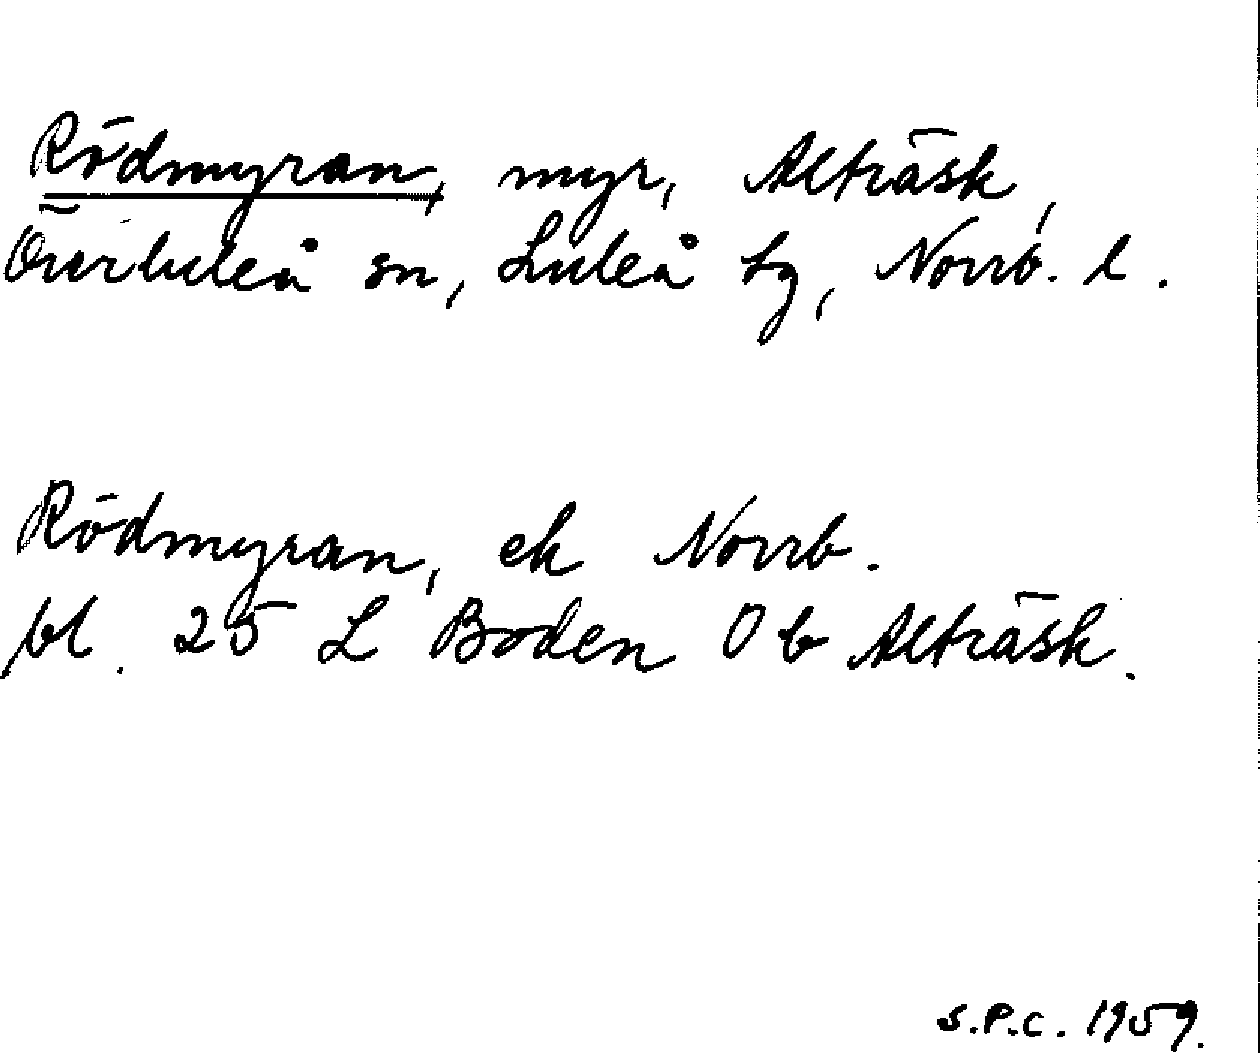 Rödmyran, myr, Alträsk,
Överluleå sn, Luleå tg, Norrb. l.
Rödmyran, ek Norrb.
bl. 25 L Boden 0 b Alträsk.
S.P.C. 1959.